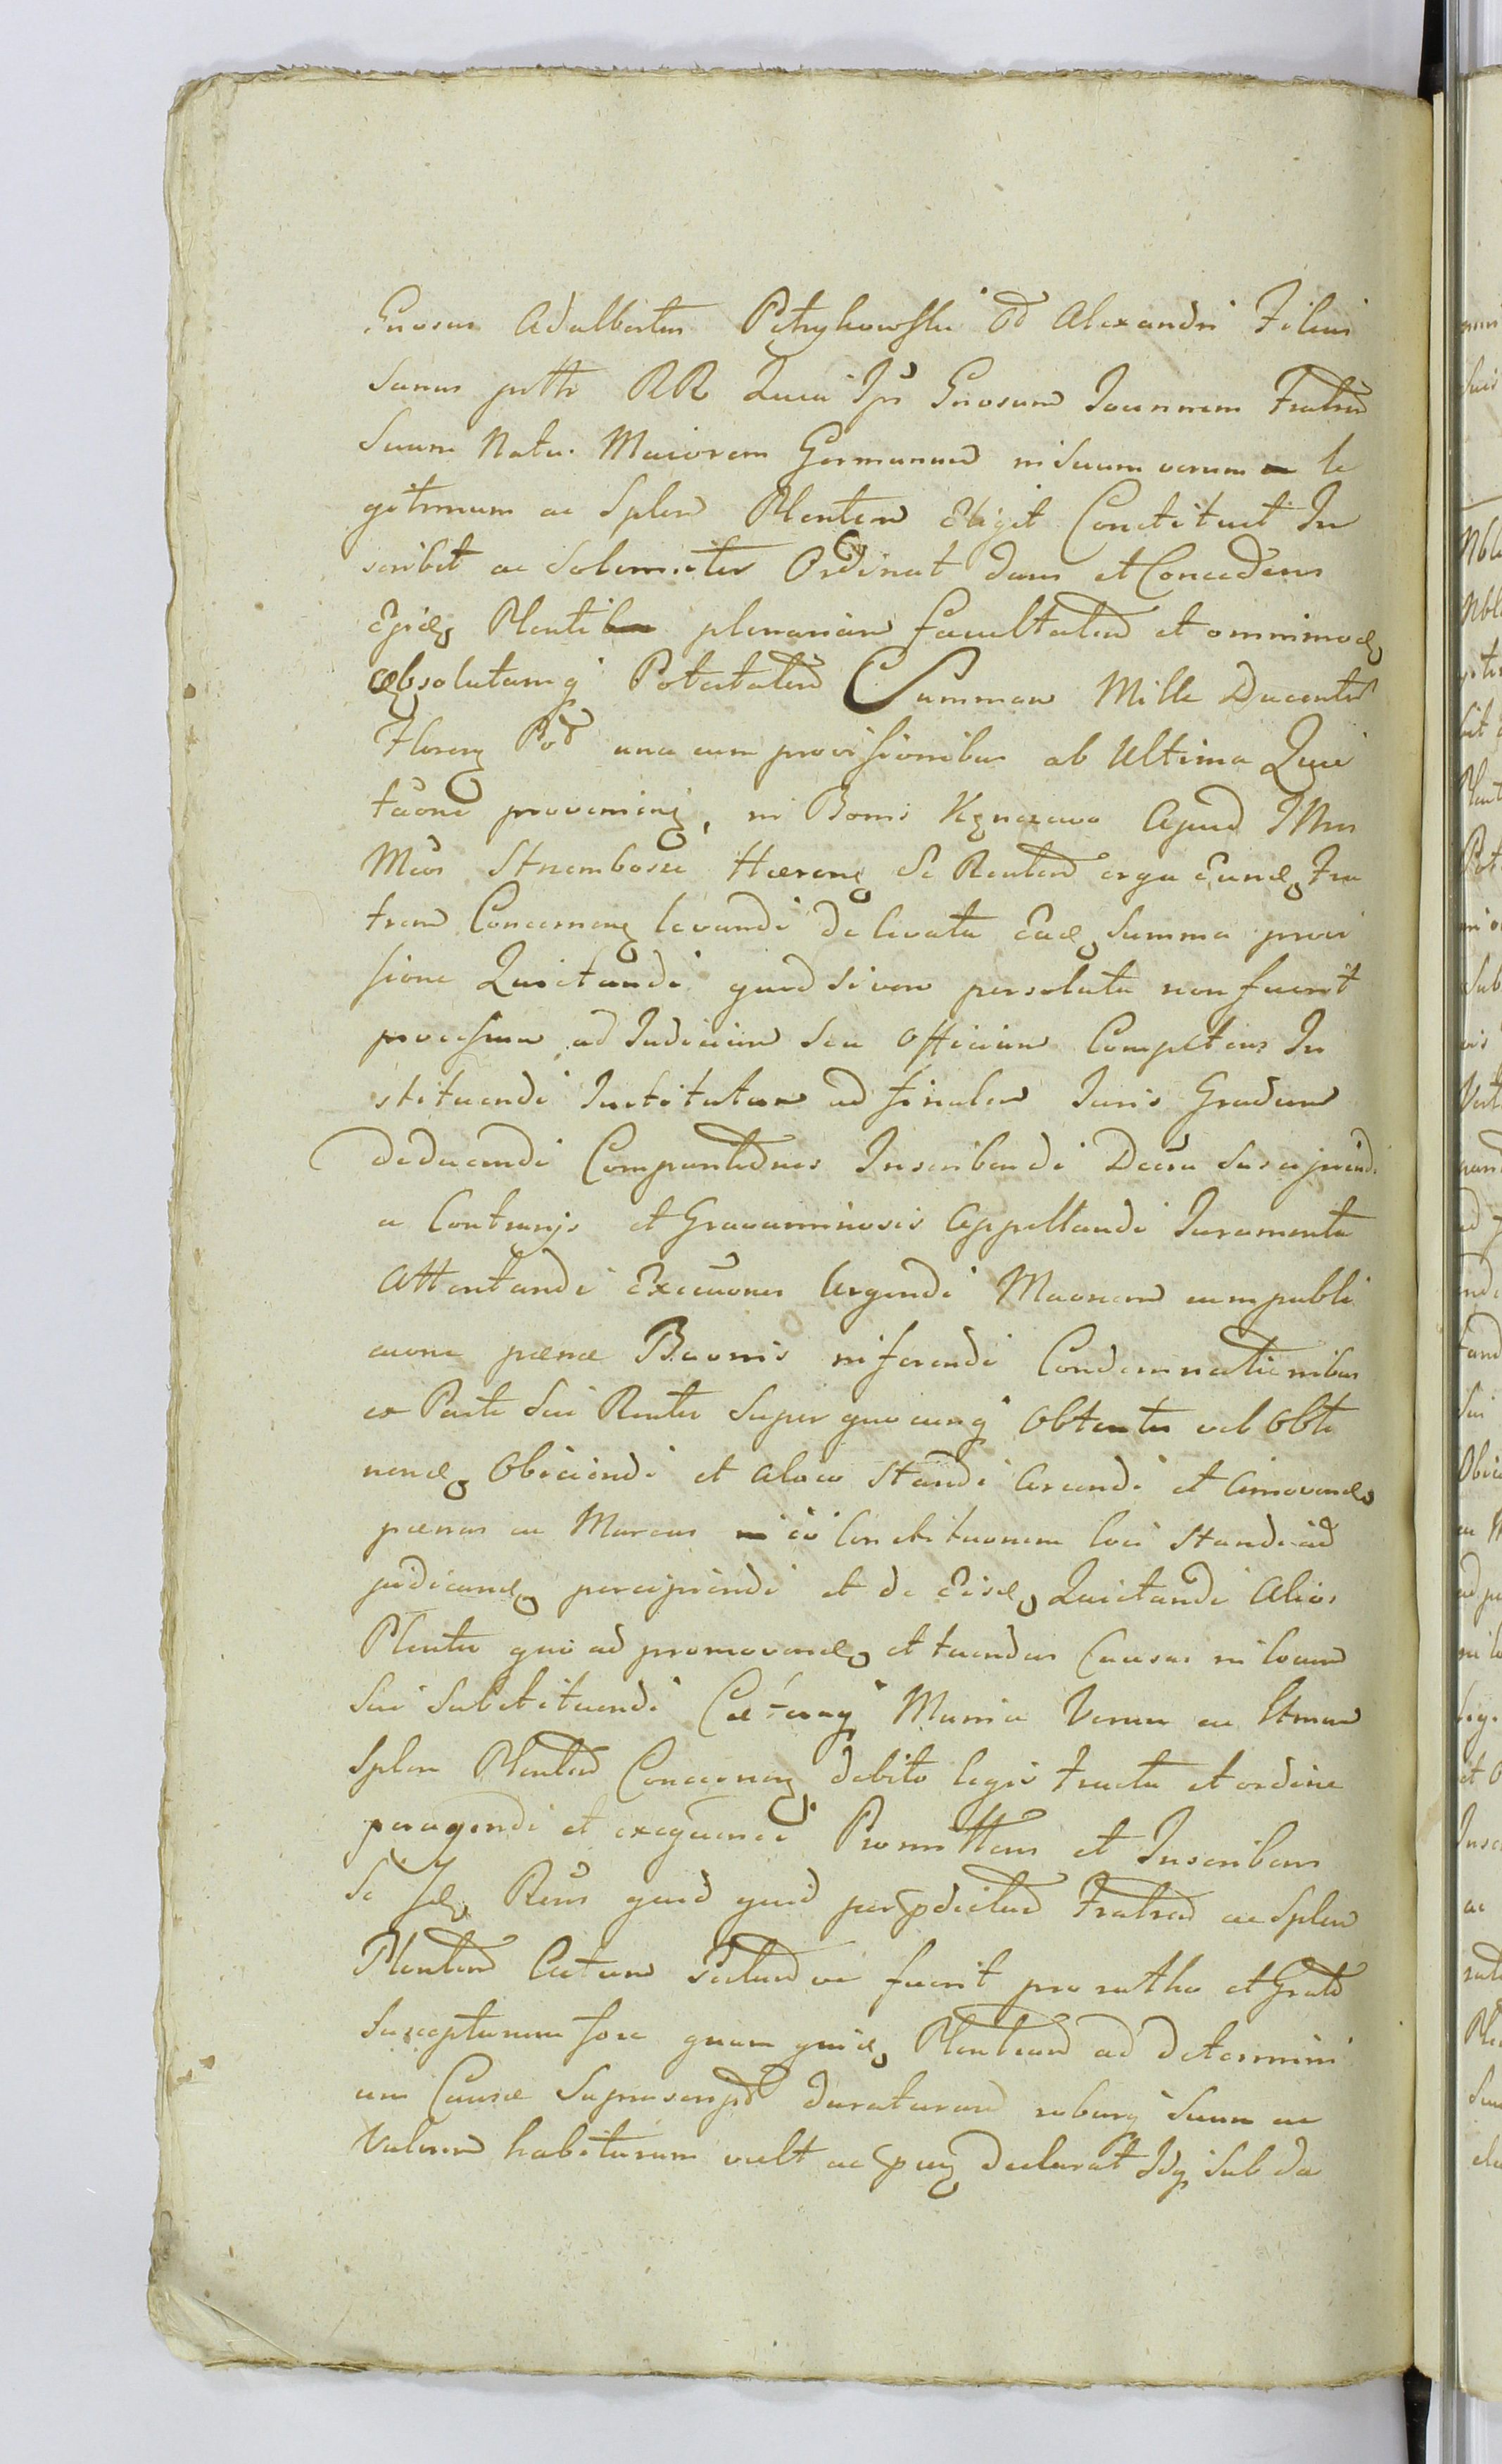 Gnosus Adalbertus Petrykowski Od Alexandri Filius
Sanus ptte RR Quia Ipse Gnosum Joannem Fratrem
Suum Natu Maiorem Germanum in Suum verum le
gitimum ac Splem Plentem Eligit Constituit In
scribit ac Solemniter Ordinat dans et Concedens
Plenti plenariam facultatem et omnimod
absolutamq Potestatem Summam Mille Ducentor
Floreng Pol una cum provisionibus ab Ultima Qui
taone provening, in Bonis apud IMm
Mcos Strembosze Hæreng Se Rentem erga Eund Fra
trem Concerneng levandi de levata Ead Summa provi
sione Quietandi quod si vero persoluta non fuerit
processum ad Iudicium Seu Officium Competens In
stituendi Institutum ad finalem Iuris Gradum
deducendi Comparitiones Inscribendi Decreta Suscipiendi
a Contrarijs et Gravaminosis Appellandi Juramenta
Attentandi Execuones Urgendi Maonem cum publi
caone pœnæ Baonis in ferendi Condemnationibus
ex Parte Sui Rentis Super quocunq Obtentis vel Obti
nend Obiiciendi et a loco Standi Arcendi et Amovend
pœnas ac Marcas Constituonem loci Standi ad
judicand percipiendi et de Eisd Quietandi Alios
Plentes quo ad promovend et tuendas Causas in locum
Sui Substituendi Cæteraq Munia Verum ac ltmum
Splem Plentem Concerneng debito legis tractu et ordine
peragendi et exequendi Promittens et Inscribens
Se Id Rens quid quid per pdictum Fratrem ac Splem
Plentem Actum factum ve fuerit pro ratho et Grato
Suscepturum fore quam quid Plentiam ad determini
um Causæ Suprascript duraturam roburq Suum ac
Valorem habituram vult ac declarat Idq Sub da